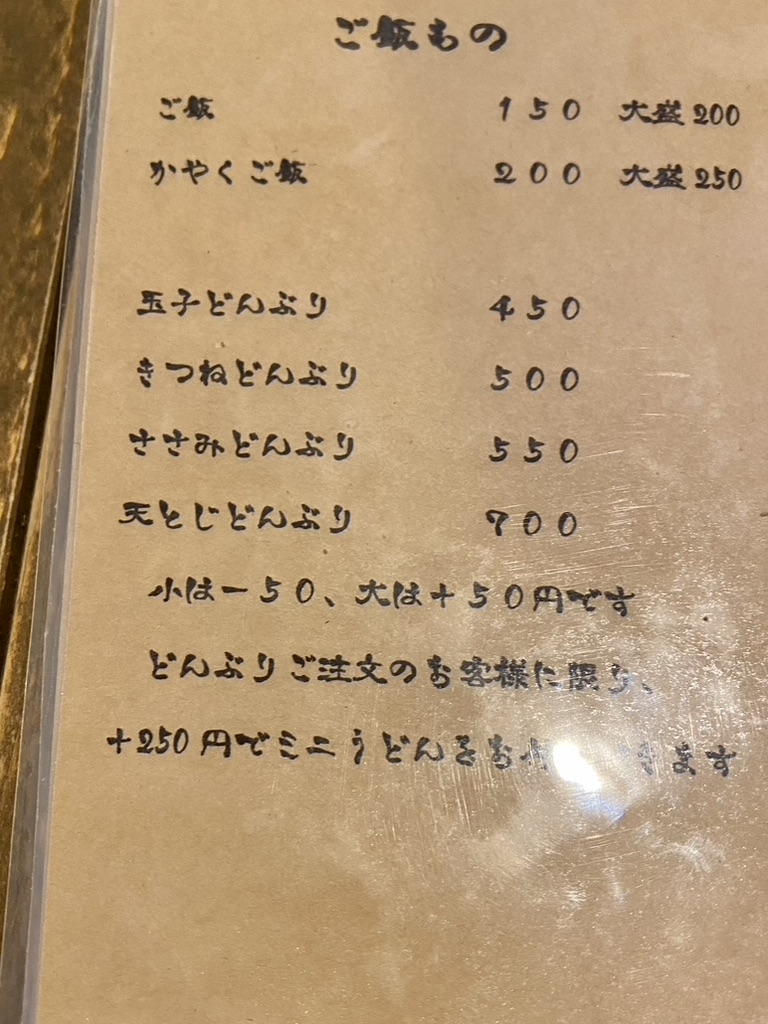 ご飯もの
ご飯 150 大盛200
かやくご飯 200 大盛250
玉子どんぶり 450
きつねどんぶり 500
ささみどんぶり 550
天とじどんぶり 700
小は－50、大は＋50円です
どんぶりご注文のお客様に限り、
＋250円でミニうどんをお きます